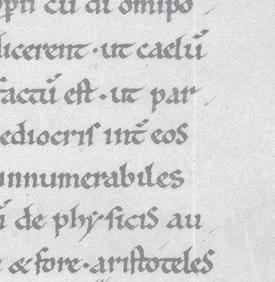 cū di omipo
dicerent · ut caelū
factū est · ut par
ediocris int̄ eos
innumerabiles
ū de phẏsicis au
& fore · aristoteles